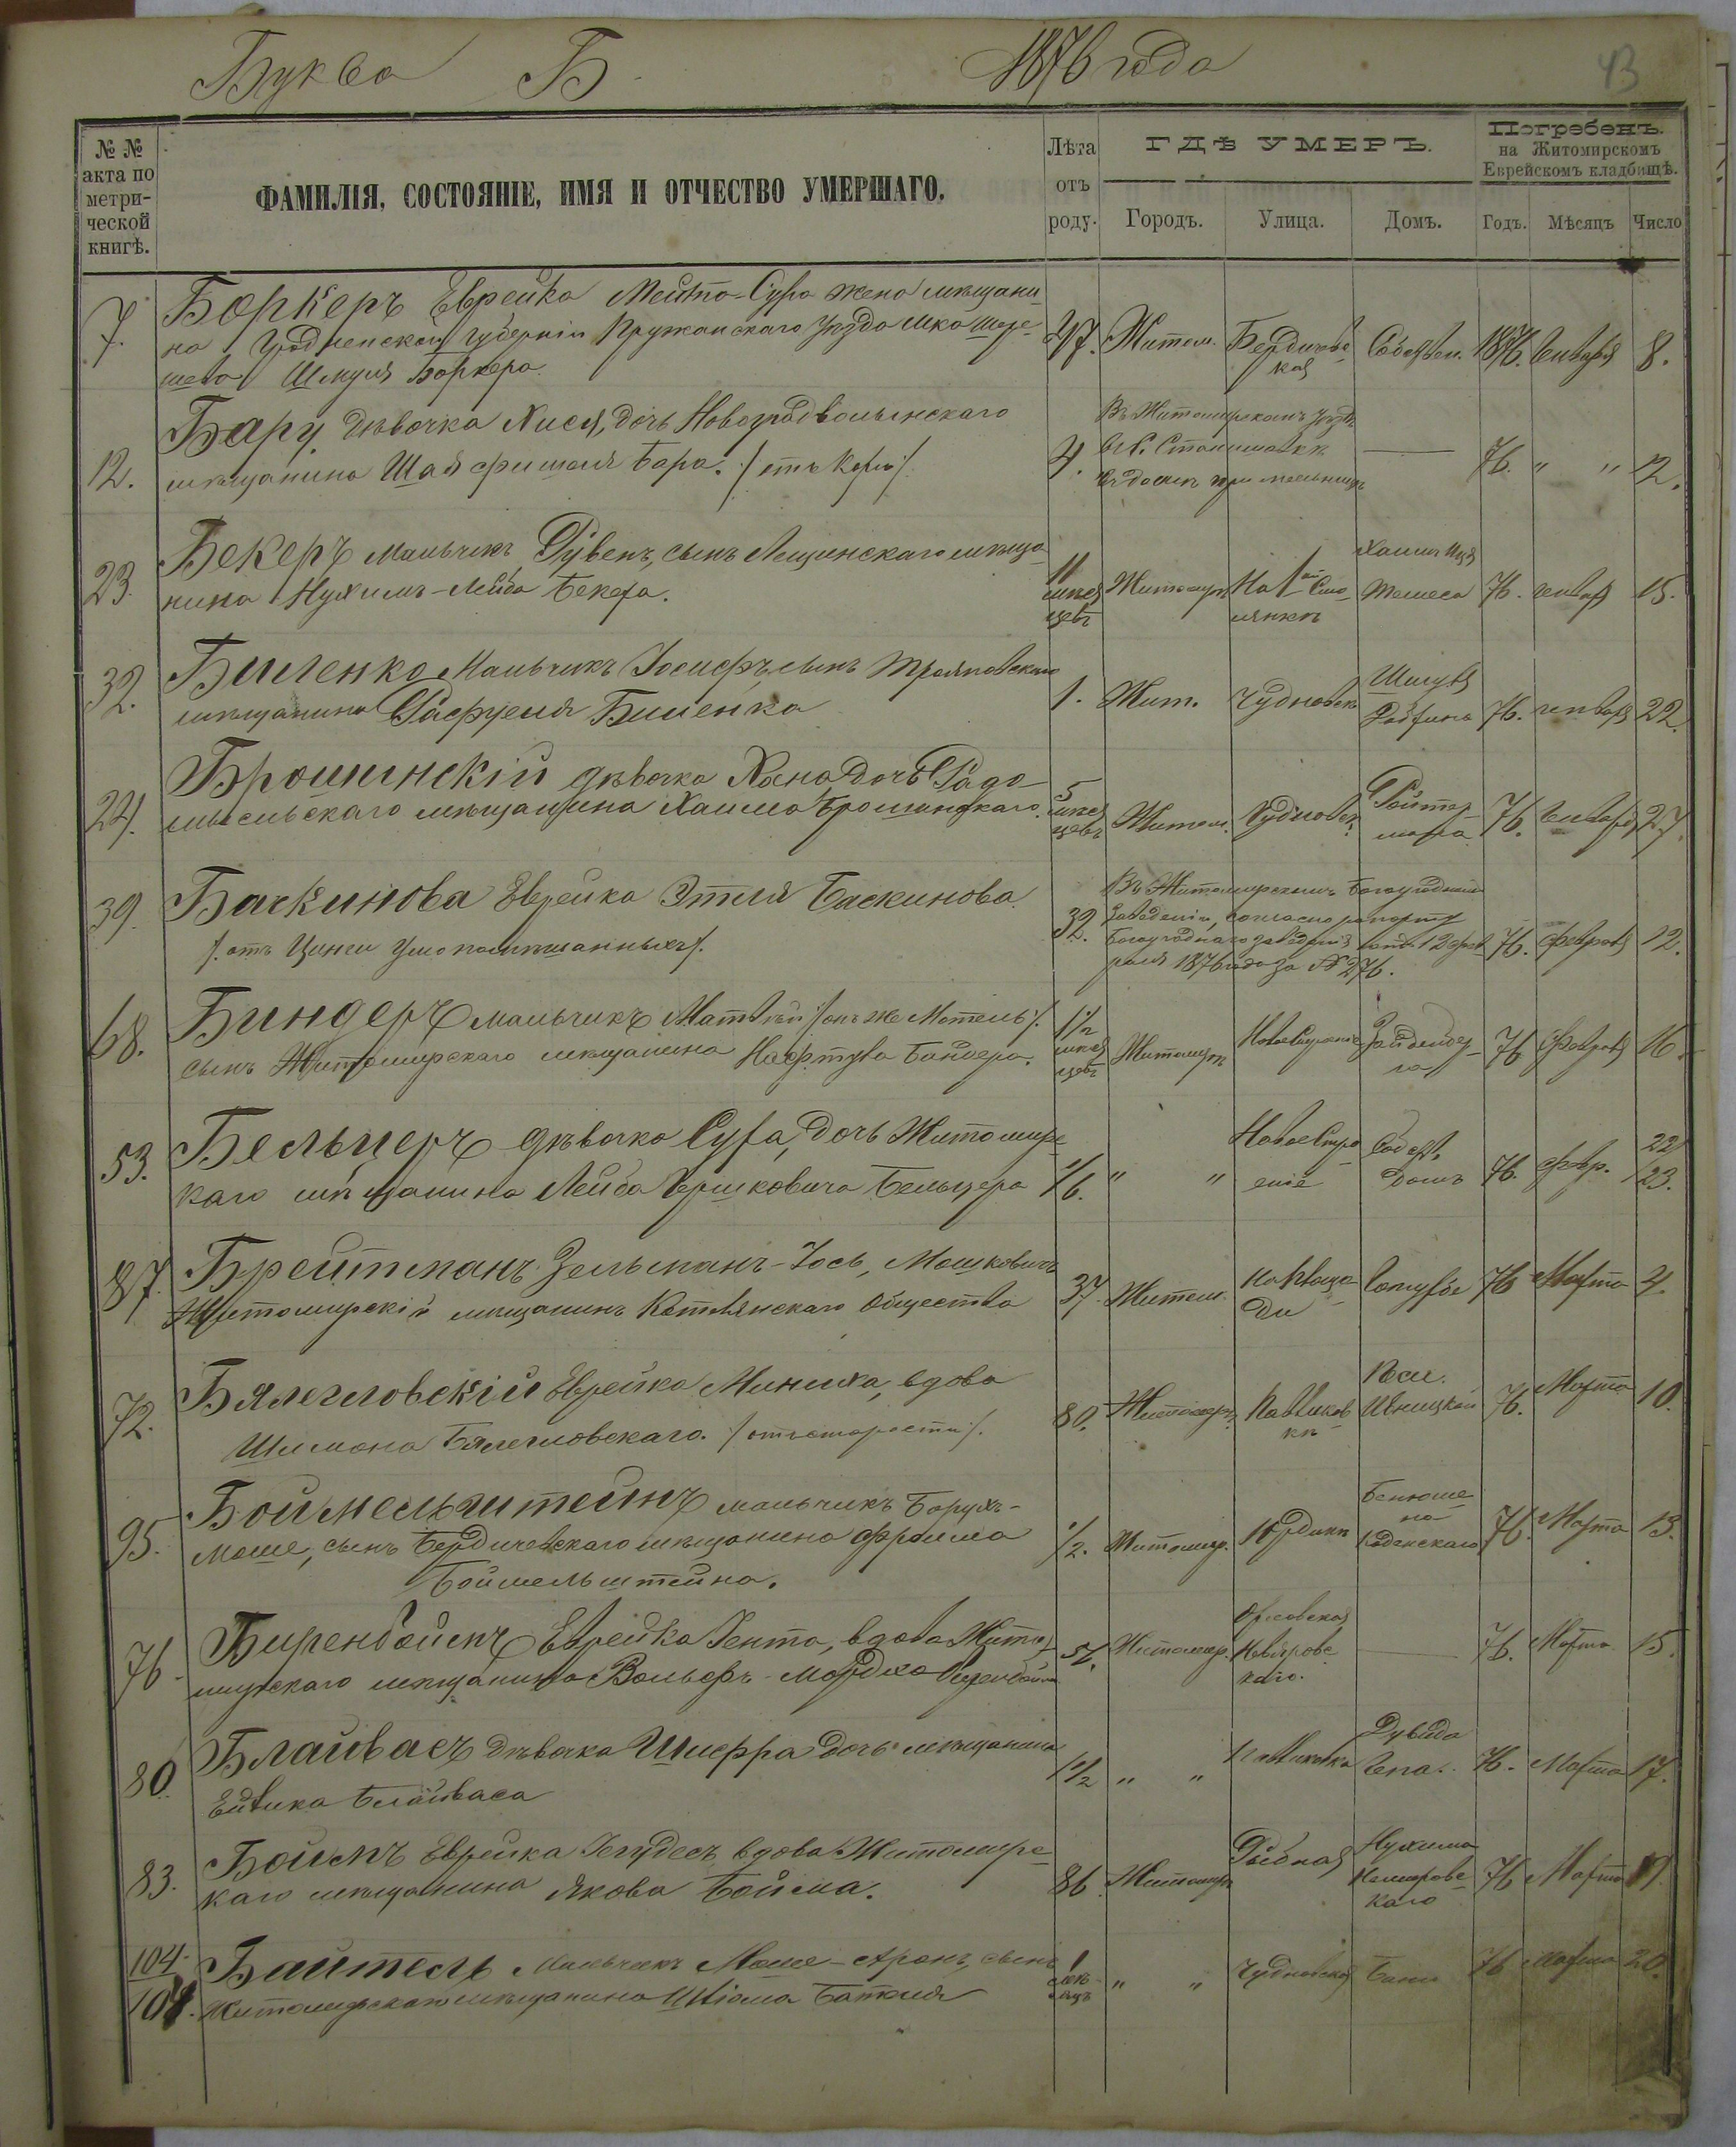 Буква Б. 1876 года
43
№ № акта по метрической книгѣ.
ФАМИЛІЯ, СОСТОЯНІЕ, ИМЯ И ОТЧЕСТВО УМЕРШАГО.
Лѣта отъ роду.
ГДѢ УМЕРЪ.
Городъ. Улица. Домъ.
Погребенъ.
на Житомирскомъ
Еврейскомъ кладбищѣ.
Годъ. Мѣсяцъ Число
7. Боркеръ Еврейка Мейто-Сура жена мѣщани
на Гродненской губерніи Пружанскаго уѣзда мка Шере-
шева Шмуля Боркера.
47. Житом. Бердичевс
кая Собствен. 1876. Января 8.
12. Бару дѣвочка Хися, дочь Новоградволынскаго
мѣщанина Шая Фишеля Бара. /отъ Кори/.
4. Въ Житомирскомъ уѣздѣ
въ домѣ при мельницѣ
76. " " 12.
23. Бекеръ мальчикъ Рувенъ, сынъ Лещинскаго мѣща
нина Нухимъ-Лейба Бекера.
11 мѣся
цевъ Житомиръ На 1ой Смо-
лянкѣ Хаимъ 76. января 15.
32. Биленко Мальчикъ Іосифъ, сынъ Трояновскаго
мѣщанина Рафуеля Биленка
1. Жит. Чудновск. 76. января 22.
24. Брошинскій дѣвочка Хана дочь Радо-
мысльскаго мѣщанина Хаима Брошинскаго.
5 мѣся
цевъ Житом. Чудновск. Ройтер
мана 76. Января 27.
39. Баскинова Еврейка Этля Баскинова.
/. отъ Цинги умопомѣшанныхъ/.
32. Въ Житомирскомъ Богоугодномъ
Заведеніи, согласно рапорту
Богоугоднаго заведенія отъ 12 фев
раля 1876 года за № 276.
76. февраля 12.
68. Биндеръ мальчикъ Матвѣй /онъ же Мотель/.
сынъ Житомирскаго мѣщанина Нафтула Биндера.
1½
мѣся
цевъ Житомиръ Новостроеніе 76 Февраля 16.
53. Бельцеръ дѣвочка Сура, дочь Житомирс
каго мѣщанина Лейба Гершковича Бельцера
1/6. " " Новое Стро
еніе Собств.
домъ 76. февр. 22/23.
87. Брейтманъ Зельманъ-Іось, Мошковичъ
Житомирскій мѣщанинъ Котвянскаго Общества
37. Житом. На Площа
ди 76 Марта 4.
72. Бялегловскій Еврейка Миниха, вдова
Шимона Бялегловскаго. /отъ старости/.
80. Житомиръ. Павликов
кѣ Ивницкой 76. Марта 10.
95. Боймельштейнъ мальчикъ Борухъ-
Моше, сынъ Бердичевскаго мѣщанина Фроима
Боймельштейна.
1/2. Житомир. Юрдикѣ Бенюми
на
Коденскаго 76. Марта 13.
76. Биренбоймъ Еврейка Гента, вдова Жито
мирскаго мѣщанина Вольфъ-Мордко Биренбойма
57. Житомир. 76. Марта 15.
80. Блайвасъ дѣвочка Шифра дочь мѣщанина
Ейвика Блайваса
1½ " " Павликовка Дувида 76. Марта 17.
83. Боймъ Еврейка Гендесъ вдова Житомирс-
каго мѣщанина Якова Бойма.
86. Житомиръ Рыбная Нухима
Немировс-
каго 76 Марта 19.
104.
101. Байтель Мальчикъ Моше-Аронъ, сынъ
Житомирскаго мѣщанина Шіома Байтеля
1
мѣ-
сяцъ " " Чудновской 76 Марта 20.